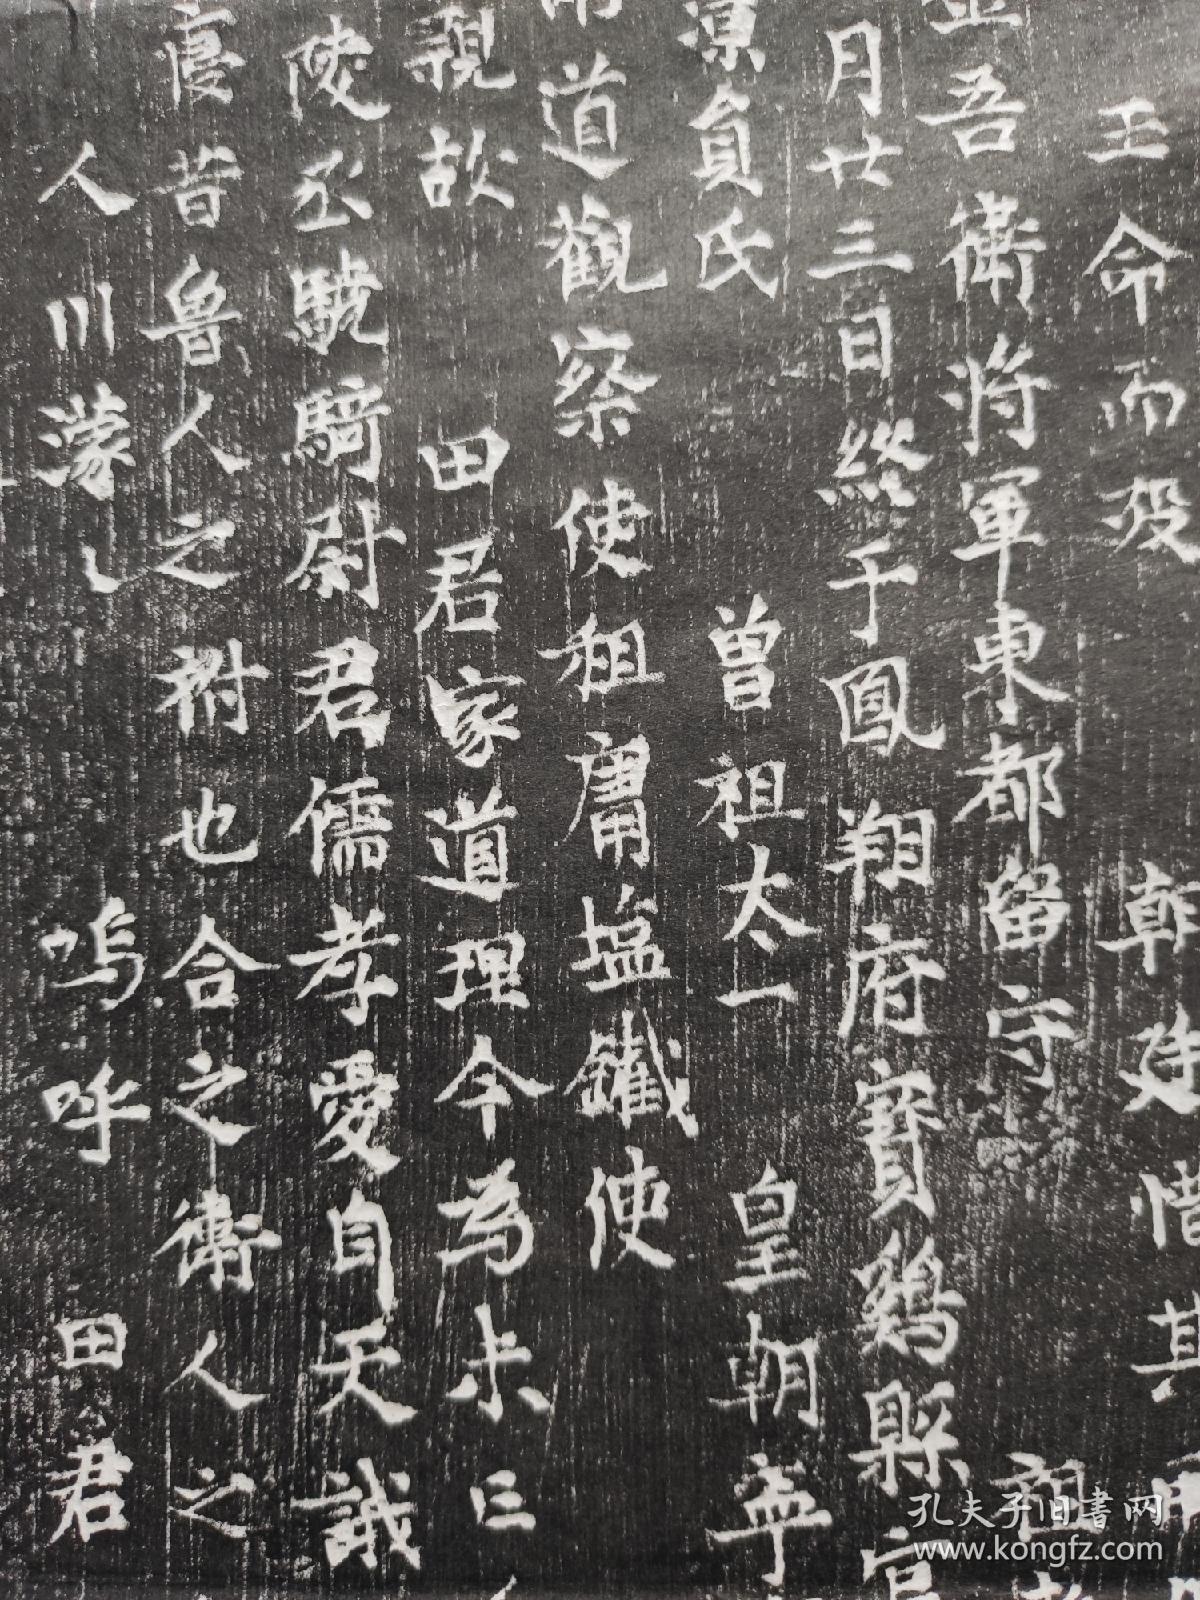 王命而歿 朝廷惜其
吾衛將軍東都留守 祖
月廿三日終于鳳翔府寶鷄縣官
貞氏 曾祖太一 皇朝寧
道觀察使租庸塩鐵使
親故 田君家道理今為未亡
陵丞驍騎尉君儒孝愛自天誠
昔魯人之祔也合之衛人之
人川濛〻 嗚呼 田君
孔夫子旧书网
www.kongfz.com